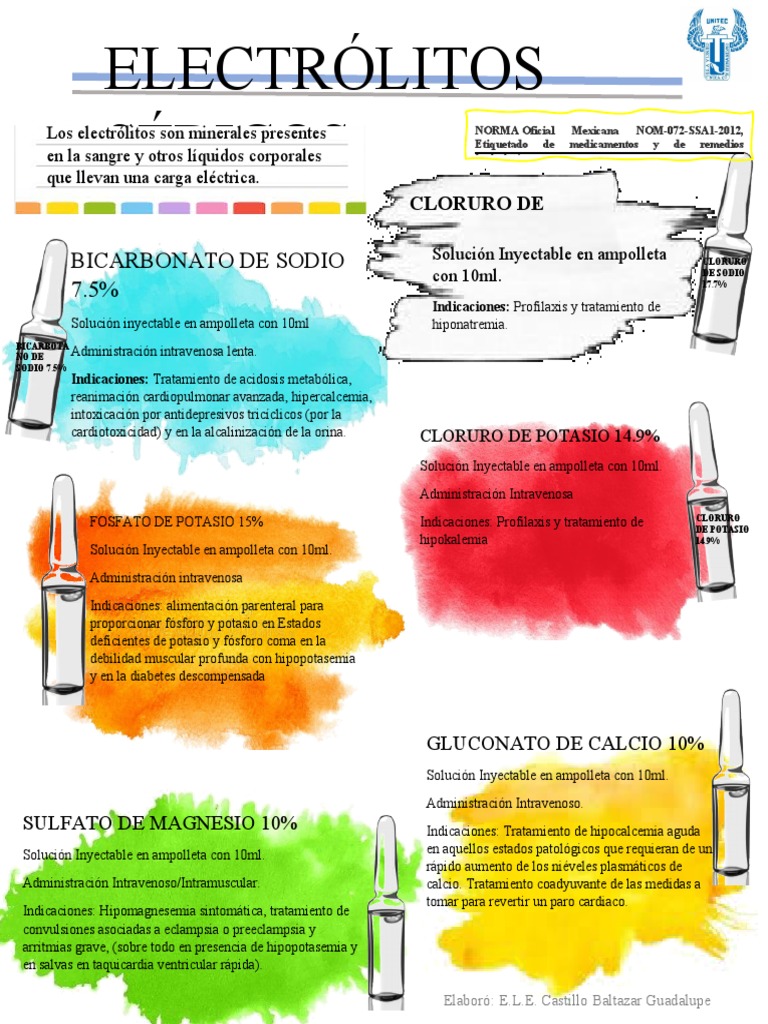 ELECTRÓLITOS
UNITEC
Los electrólitos son minerales presentes
en la sangre y otros líquidos corporales
que llevan una carga eléctrica.
NORMA Oficial Mexicana NOM-072-SSA1-2012,
Etiquetado de medicamentos y de remedios
CLORURO DE
Solución Inyectable en ampolleta
con 10ml.
Indicaciones: Profilaxis y tratamiento de
hiponatremia.
CLORURO
DE SODIO
17.7%
BICARBONATO DE SODIO
7.5%
Solución inyectable en ampolleta con 10ml
Administración intravenosa lenta.
Indicaciones: Tratamiento de acidosis metabólica,
reanimación cardiopulmonar avanzada, hipercalcemia,
intoxicación por antidepresivos tricíclicos (por la
cardiotoxicidad) y en la alcalinización de la orina.
BICARBOTA
NO DE
SODIO 7.5%
CLORURO DE POTASIO 14.9%
Solución Inyectable en ampolleta con 10ml.
Administración Intravenosa
Indicaciones: Profilaxis y tratamiento de
hipokalemia
CLORURO
DE POTASIO
14.9%
FOSFATO DE POTASIO 15%
Solución Inyectable en ampolleta con 10ml.
Administración intravenosa
Indicaciones: alimentación parenteral para
proporcionar fósforo y potasio en Estados
deficientes de potasio y fósforo coma en la
debilidad muscular profunda con hipopotasemia
y en la diabetes descompensada
GLUCONATO DE CALCIO 10%
Solución Inyectable en ampolleta con 10ml.
Administración Intravenoso.
Indicaciones: Tratamiento de hipocalcemia aguda
en aquellos estados patológicos que requieran de un
rápido aumento de los niéveles plasmáticos de
calcio. Tratamiento coadyuvante de las medidas a
tomar para revertir un paro cardiaco.
SULFATO DE MAGNESIO 10%
Solución Inyectable en ampolleta con 10ml.
Administración Intravenoso/Intramuscular.
Indicaciones: Hipomagnesemia sintomática, tratamiento de
convulsiones asociadas a eclampsia o preeclampsia y
arritmias grave, (sobre todo en presencia de hipopotasemia y
en salvas en taquicardia ventricular rápida).
Elaboró: E.L.E. Castillo Baltazar Guadalupe